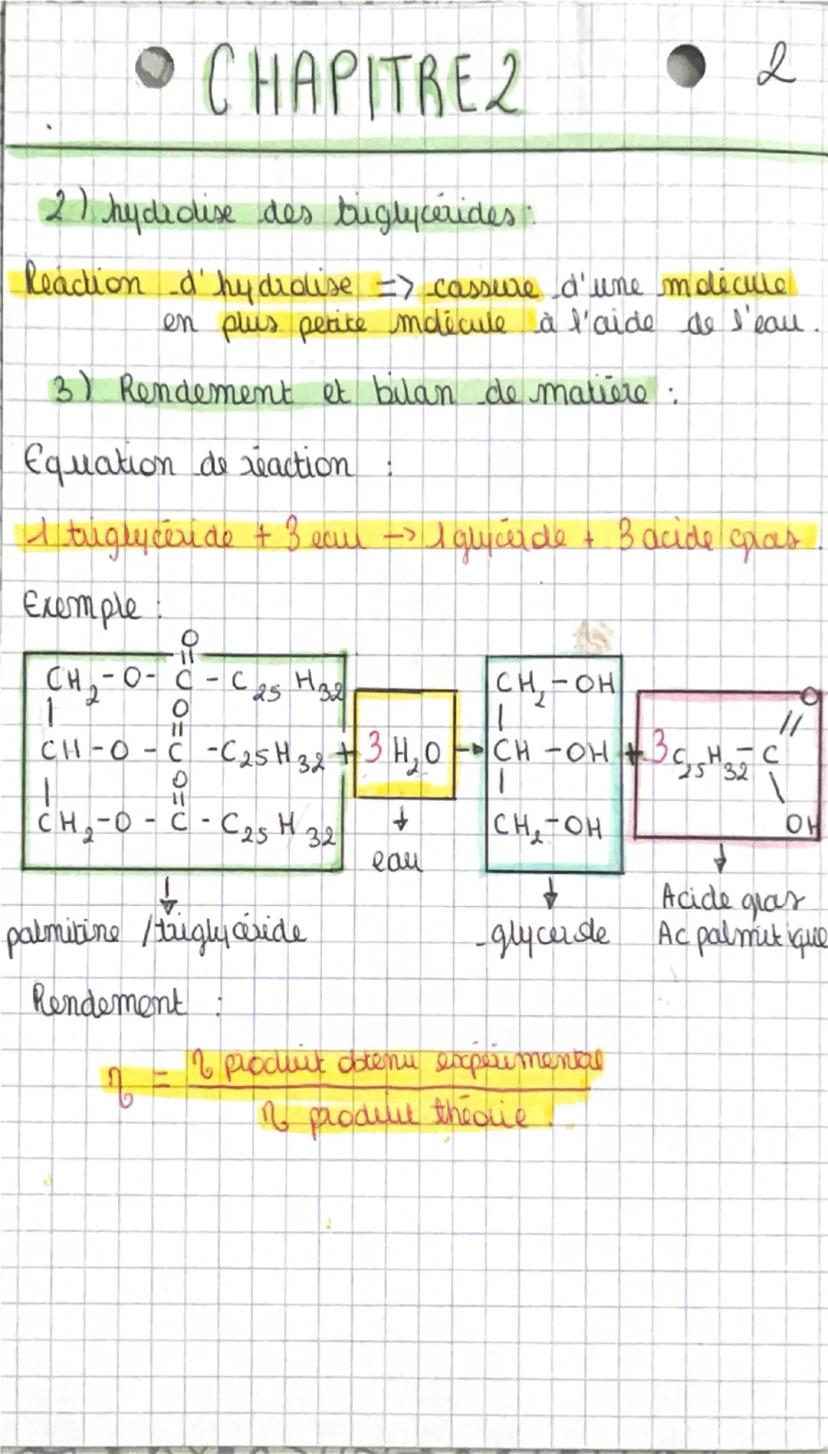 CHAPITRE 2
2
2) hydrolise des triglycérides :
Réaction d'hydrolise => cassure d'une molécule
en plus petite molécule à l'aide de l'eau.
3) Rendement et bilan de matière :
Equation de réaction :
1 triglycéride + 3 eau -> 1 glycérde + 3 acide gras.
Exemple :
O
CH2-O-C-C25H32
O
CH-O-C-C25H32
O
CH2-O-C-C25H32
+ 3 H2O ->
CH2-OH
CH-OH
CH2-OH
+ 3 C25H32-C
O
OH
eau
palmitine / triglycéride
glycerole
Acide gras
Ac palmitique
Rendement :
η = η produit obtenu expérimental
η produit théorie.